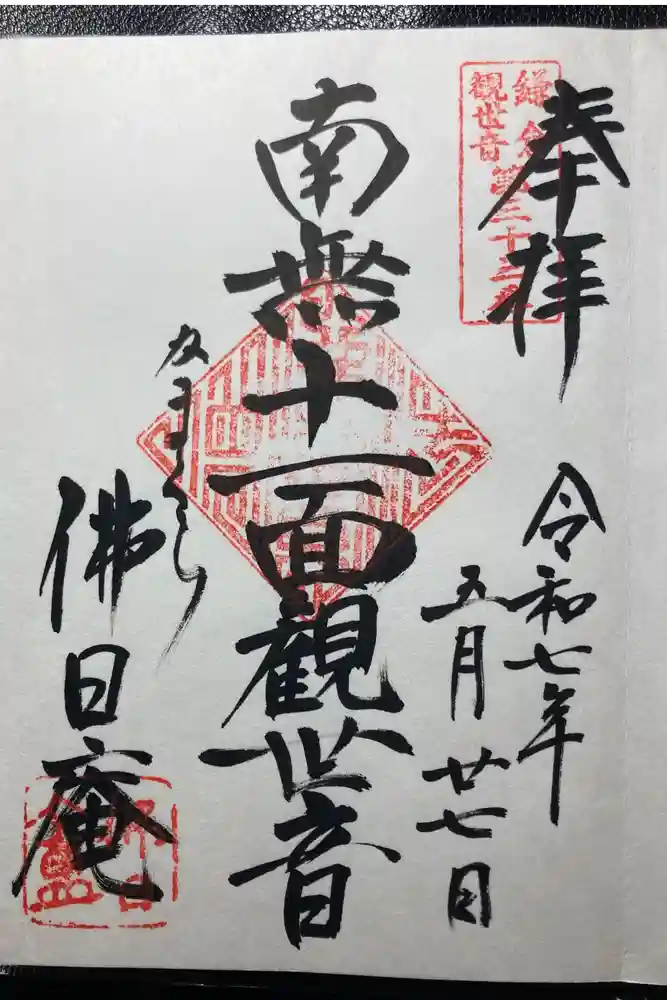 奉拝
鎌倉
観世音
第三十三番
令和七年
五月廿七日
南無十一面観世音
かまくら
佛日庵